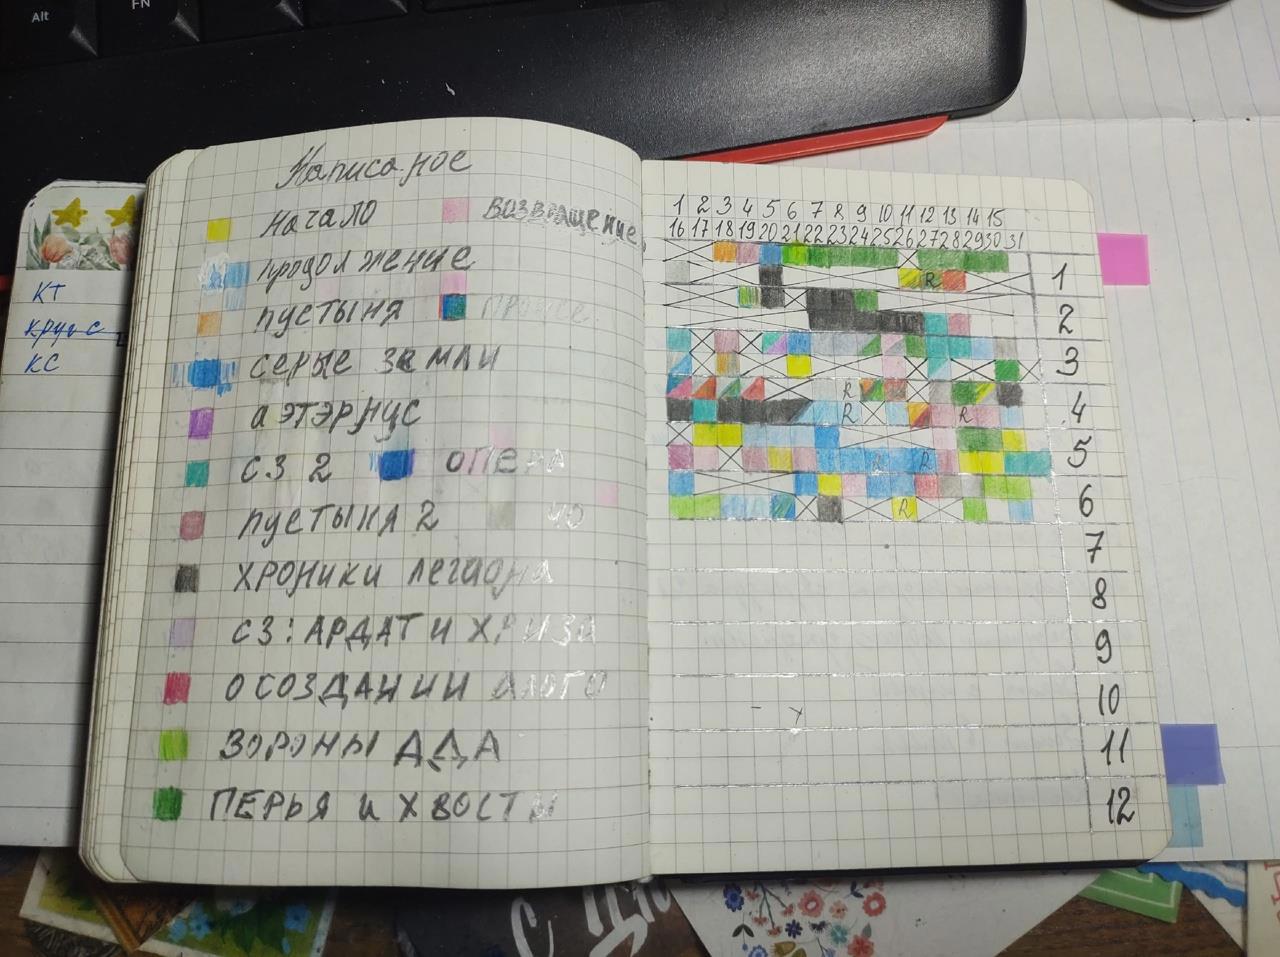 Alt
FN
КТ
КС
Написаное
начало
возвращение
продолжение
пустыня
серые земли
аэтэрнус
сз 2
опера
пустыня 2
чо
хроники легиона
сз: Ардат и Хриза
о создании алого
вороны ада
перья и хвосты
1 2 3 4 5 6 7 8 9 10 11 12 13 14 15
16 17 18 19 20 21 22 23 24 25 26 27 28 29 30 31
R
1
2
3
R
R R
4
R R
5
R
6
7
8
9
10
11
12
С